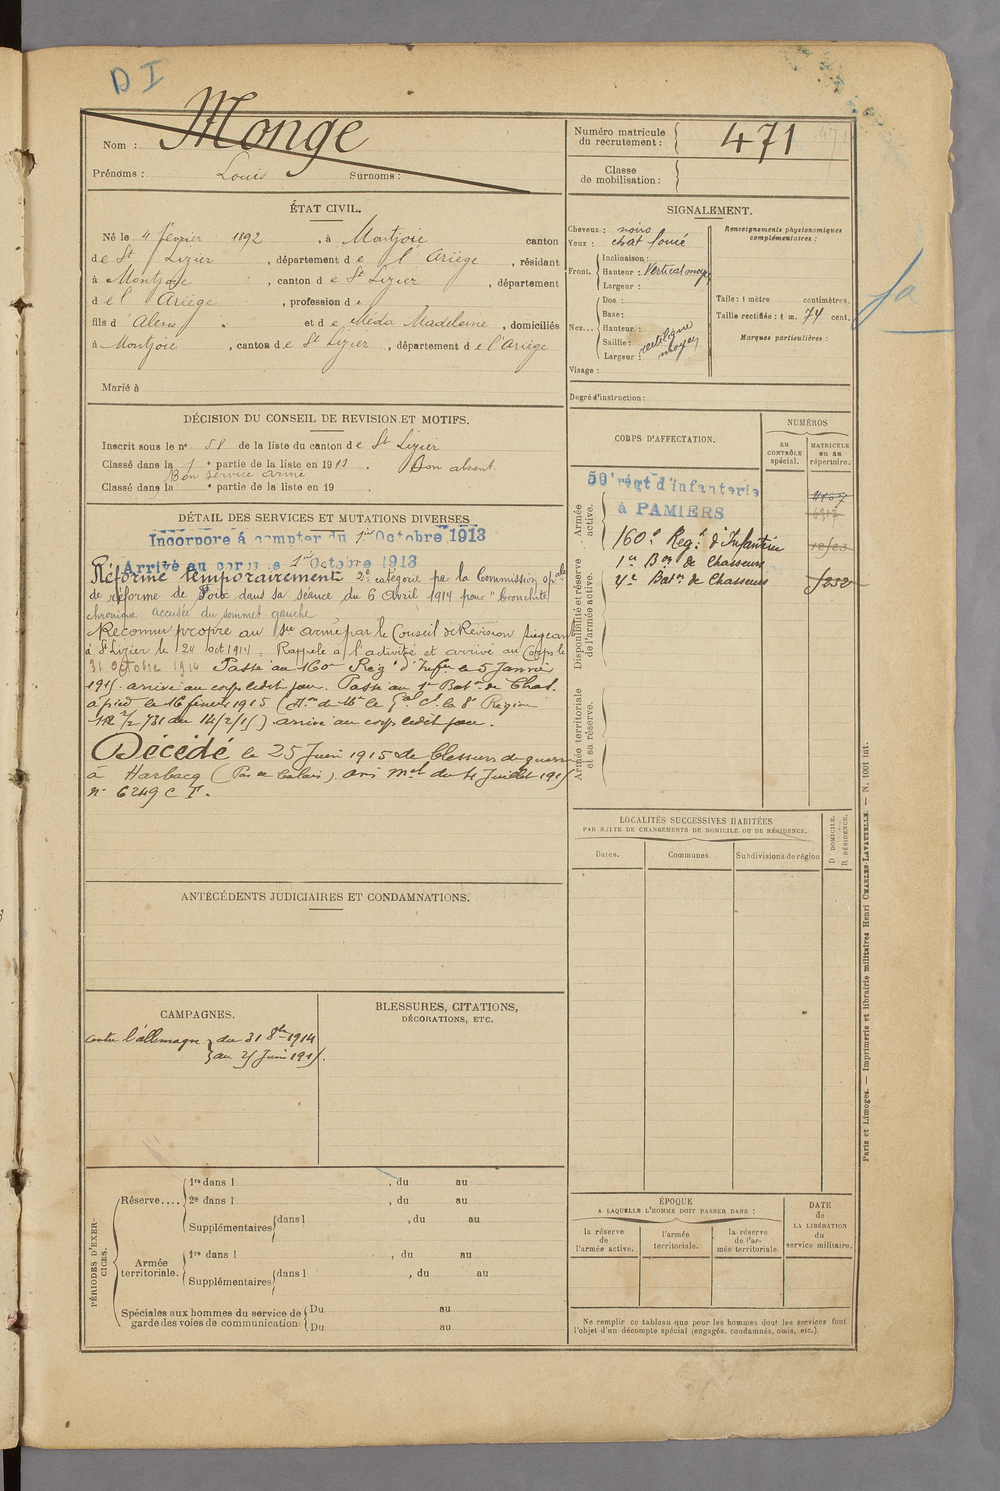 D I
Nom : Monge
Prénoms : Louis Surnoms :
Numéro matricule du recrutement : 471
Classe de mobilisation :
ÉTAT CIVIL.
Né le 4 février 1892, à Montjoie canton
de St Lizier, département de l'Ariège, résidant
à Montjoie, canton de St Lizier, département
de l'Ariège, profession de
fils d'Alexis et de Méda Madeleine, domiciliés
à Montjoie, canton de St Lizier, département de l'Ariège
Marié à
DÉCISION DU CONSEIL DE REVISION ET MOTIFS.
Inscrit sous le no 58 de la liste du canton de St Lizier
Classé dans la 1e partie de la liste en 1913. Bon absent
Bon service armé
Classé dans la e partie de la liste en 19 .
DÉTAIL DES SERVICES ET MUTATIONS DIVERSES
Incorporé à compter du 1er Octobre 1913
Arrivé au corps le 1er Octobre 1913
Réformé temporairement 2e catégorie par la Commission spale
de réforme de Foix dans sa séance du 6 Avril 1914 pour "bronchite
chronique accusée du sommet gauche
Reconnu propre au sce armé par le Conseil de Révision siégeant
à St Lizier le 24 oct 1914. Rappelé à l'activité et arrivé au Corps le
31 Octobre 1914 Passé au 160e Rég. d'Infie le 5 Janvier
1915. arrivé au corps ledit jour. Passé au 1er Baton de Chas.
à pied le 16 février 1915 ( de Mr le Gal Ct la 8e Région
2/2 731 du 14/2/15) arrivé au corps ledit jour.
Décédé le 25 Juin 1915 de blessures de guerre
à Harbacq (Pas de Calais). avis mel du 4 Juillet 1915
no 6249 C T.
ANTÉCÉDENTS JUDICIAIRES ET CONDAMNATIONS.
CAMPAGNES.
contre l'allemagne du 31 8bre 1914
au 25 Juin 1915.
BLESSURES, CITATIONS,
DÉCORATIONS, ETC.
PÉRIODES D'EXERCICES.
Réserve....
1re dans l , du au
2e dans l , du au
Supplémentaires dans l , du au
Armée territoriale.
1re dans l , du au
Supplémentaires dans l , du au
Spéciales aux hommes du service de
garde des voies de communication
Du au
Du au
SIGNALEMENT.
Cheveux : noirs
Yeux : chat foncé
Front.
Inclinaison :
Hauteur : Vertical moyen
Largeur :
Nez...
Dos :
Base :
Hauteur : rectiligne
Saillie : moyen
Largeur :
Visage :
Renseignements physionomiques
complémentaires :
Taille : 1 mètre centimètres.
Taille rectifiée : 1 m. 74 cent.
Marques particulières :
fa
Degré d'instruction :
CORPS D'AFFECTATION.
NUMÉROS
au CONTRÔLE spécial.
MATRICULE ou au répertoire.
Armée active.
59e régt d'infanterie
à PAMIERS
160e Regt d'Infanterie
Disponibilité et réserve de l'armée active.
1er Bon de Chasseurs
4e Baton de Chasseurs 5252
Armée territoriale et sa réserve.
LOCALITÉS SUCCESSIVES HABITÉES
PAR SUITE DE CHANGEMENTS DE DOMICILE OU DE RÉSIDENCE.
Dates. Communes Subdivisions de région
D DOMICILE.
R RÉSIDENCE.
ÉPOQUE
A LAQUELLE L'HOMME DOIT PASSER DANS :
la réserve de l'armée active.
l'armée territoriale.
la réserve de l'armée territoriale.
DATE de LA LIBÉRATION du service militaire.
Ne remplir ce tableau que pour les hommes dont les services font
l'objet d'un décompte spécial (engagés, condamnés, omis, etc.)
Paris et Limoges. — Imprimerie et librairie militaires Henri CHARLES-LAVAUZELLE. — N. 1001 int.